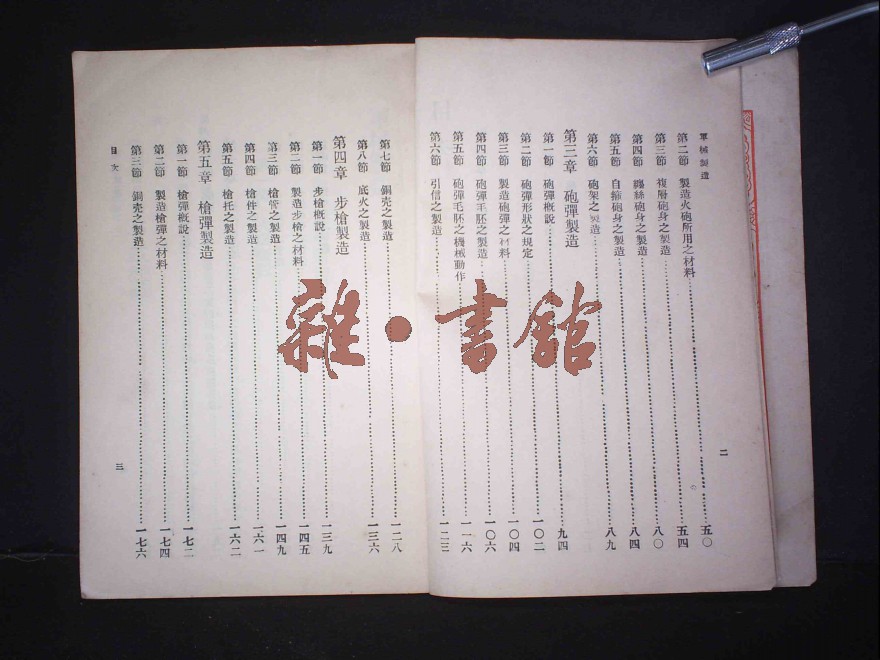 軍械製造
第二節 製造火砲所用之材料……五〇
第三節 複層砲身之製造……五四
第四節 纏絲砲身之製造……八〇
第五節 自緊砲身之製造……八四
第六節 砲架之製造……八九
第三章 砲彈製造
第一節 砲彈概說……九四
第二節 砲彈形狀之規定……一〇二
第三節 製造砲彈之材料……一〇四
第四節 砲彈毛胚之製造……一〇六
第五節 砲彈毛胚之機械動作……一一六
第六節 引信之製造……一二三
二
第七節 銅壳之製造……一二八
第八節 底火之製造……一三六
第四章 步槍製造
第一節 步槍概說……一三九
第二節 製造步槍之材料……一四五
第三節 槍管之製造……一四九
第四節 槍件之製造……一六一
第五節 槍托之製造……一六二
第五章 槍彈製造
第一節 槍彈概說……一七二
第二節 製造槍彈之材料……一七四
第三節 銅壳之製造……一七六
目次
三
雜·書館